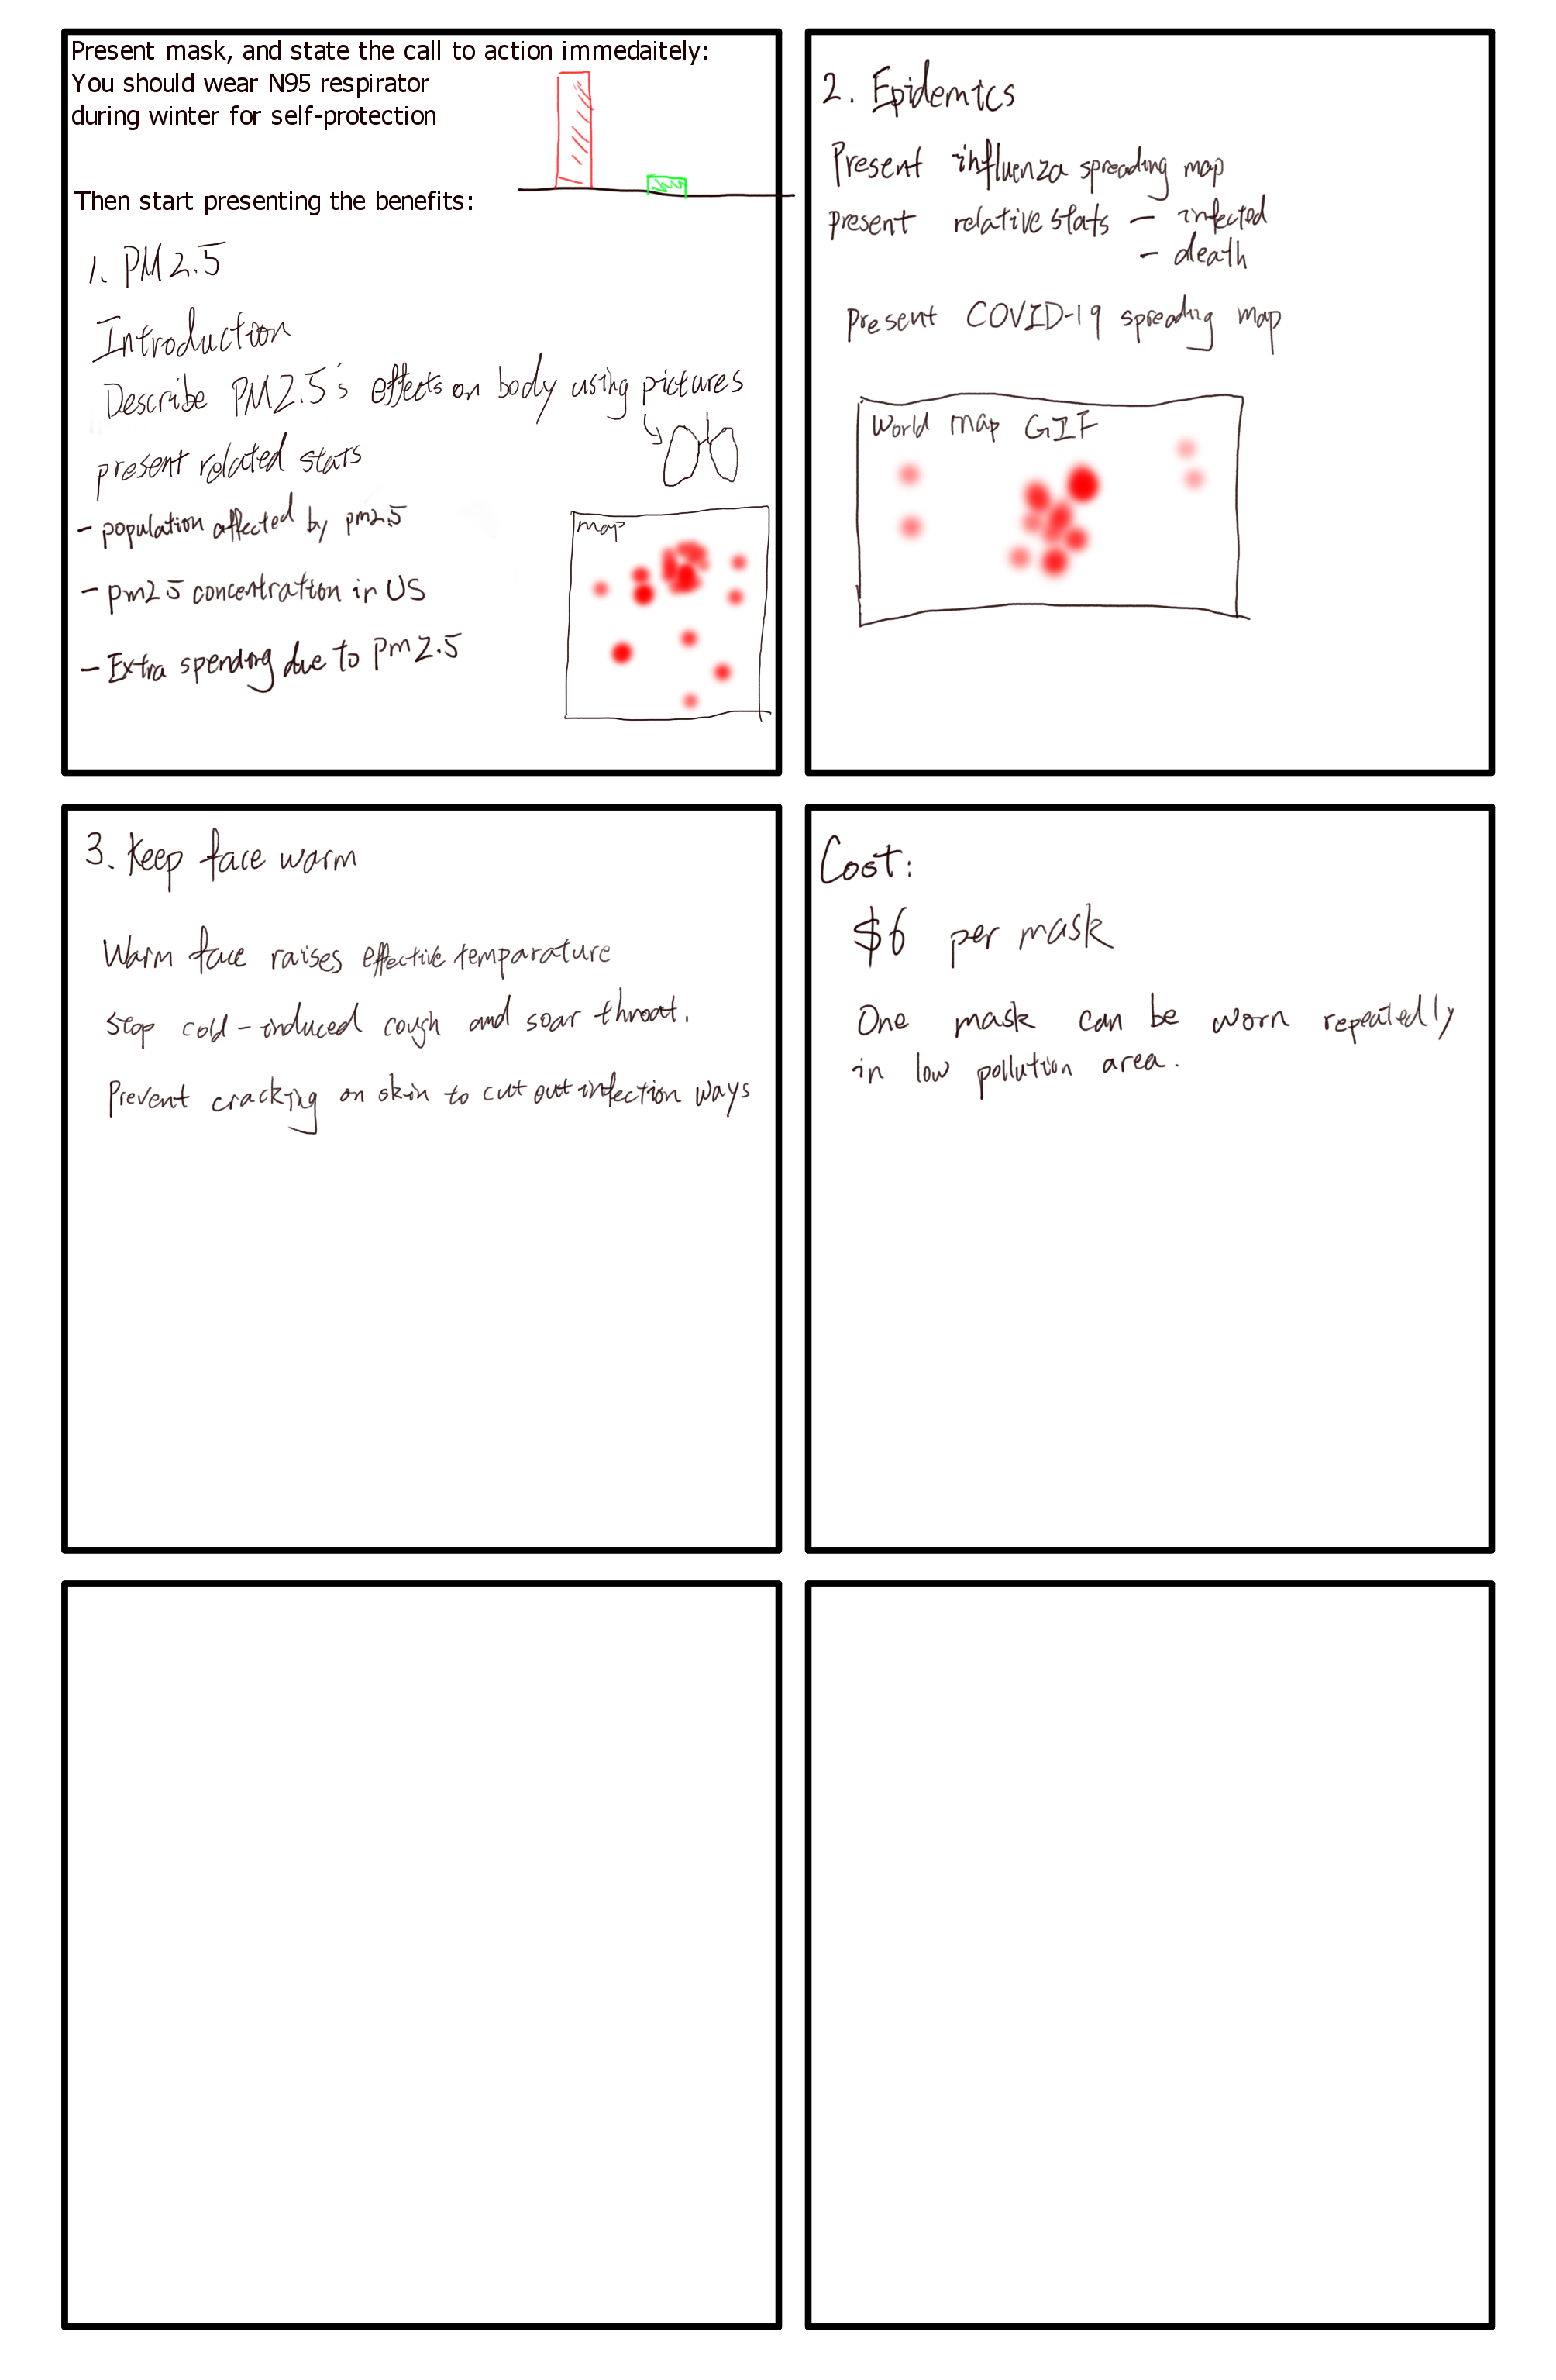 Present mask, and state the call to action immedaitely:
You should wear N95 respirator
during winter for self-protection
Then start presenting the benefits:
1. PM2.5
Introduction
Describe PM2.5's effects on body using pictures
present related stats
- population affected by pm2.5
- pm2.5 concentration in US
- Extra spending due to pm2.5
map
2. Epidemics
Present influenza spreading map
present relative stats - infected
- death
present COVID-19 spreading map
World map GIF
3. Keep face warm
Warm face raises effective temparature
Stop cold-induced cough and soar throat.
Prevent cracking on skin to cut out infection ways
Cost:
$6 per mask
One mask can be worn repeatedly
in low pollution area.